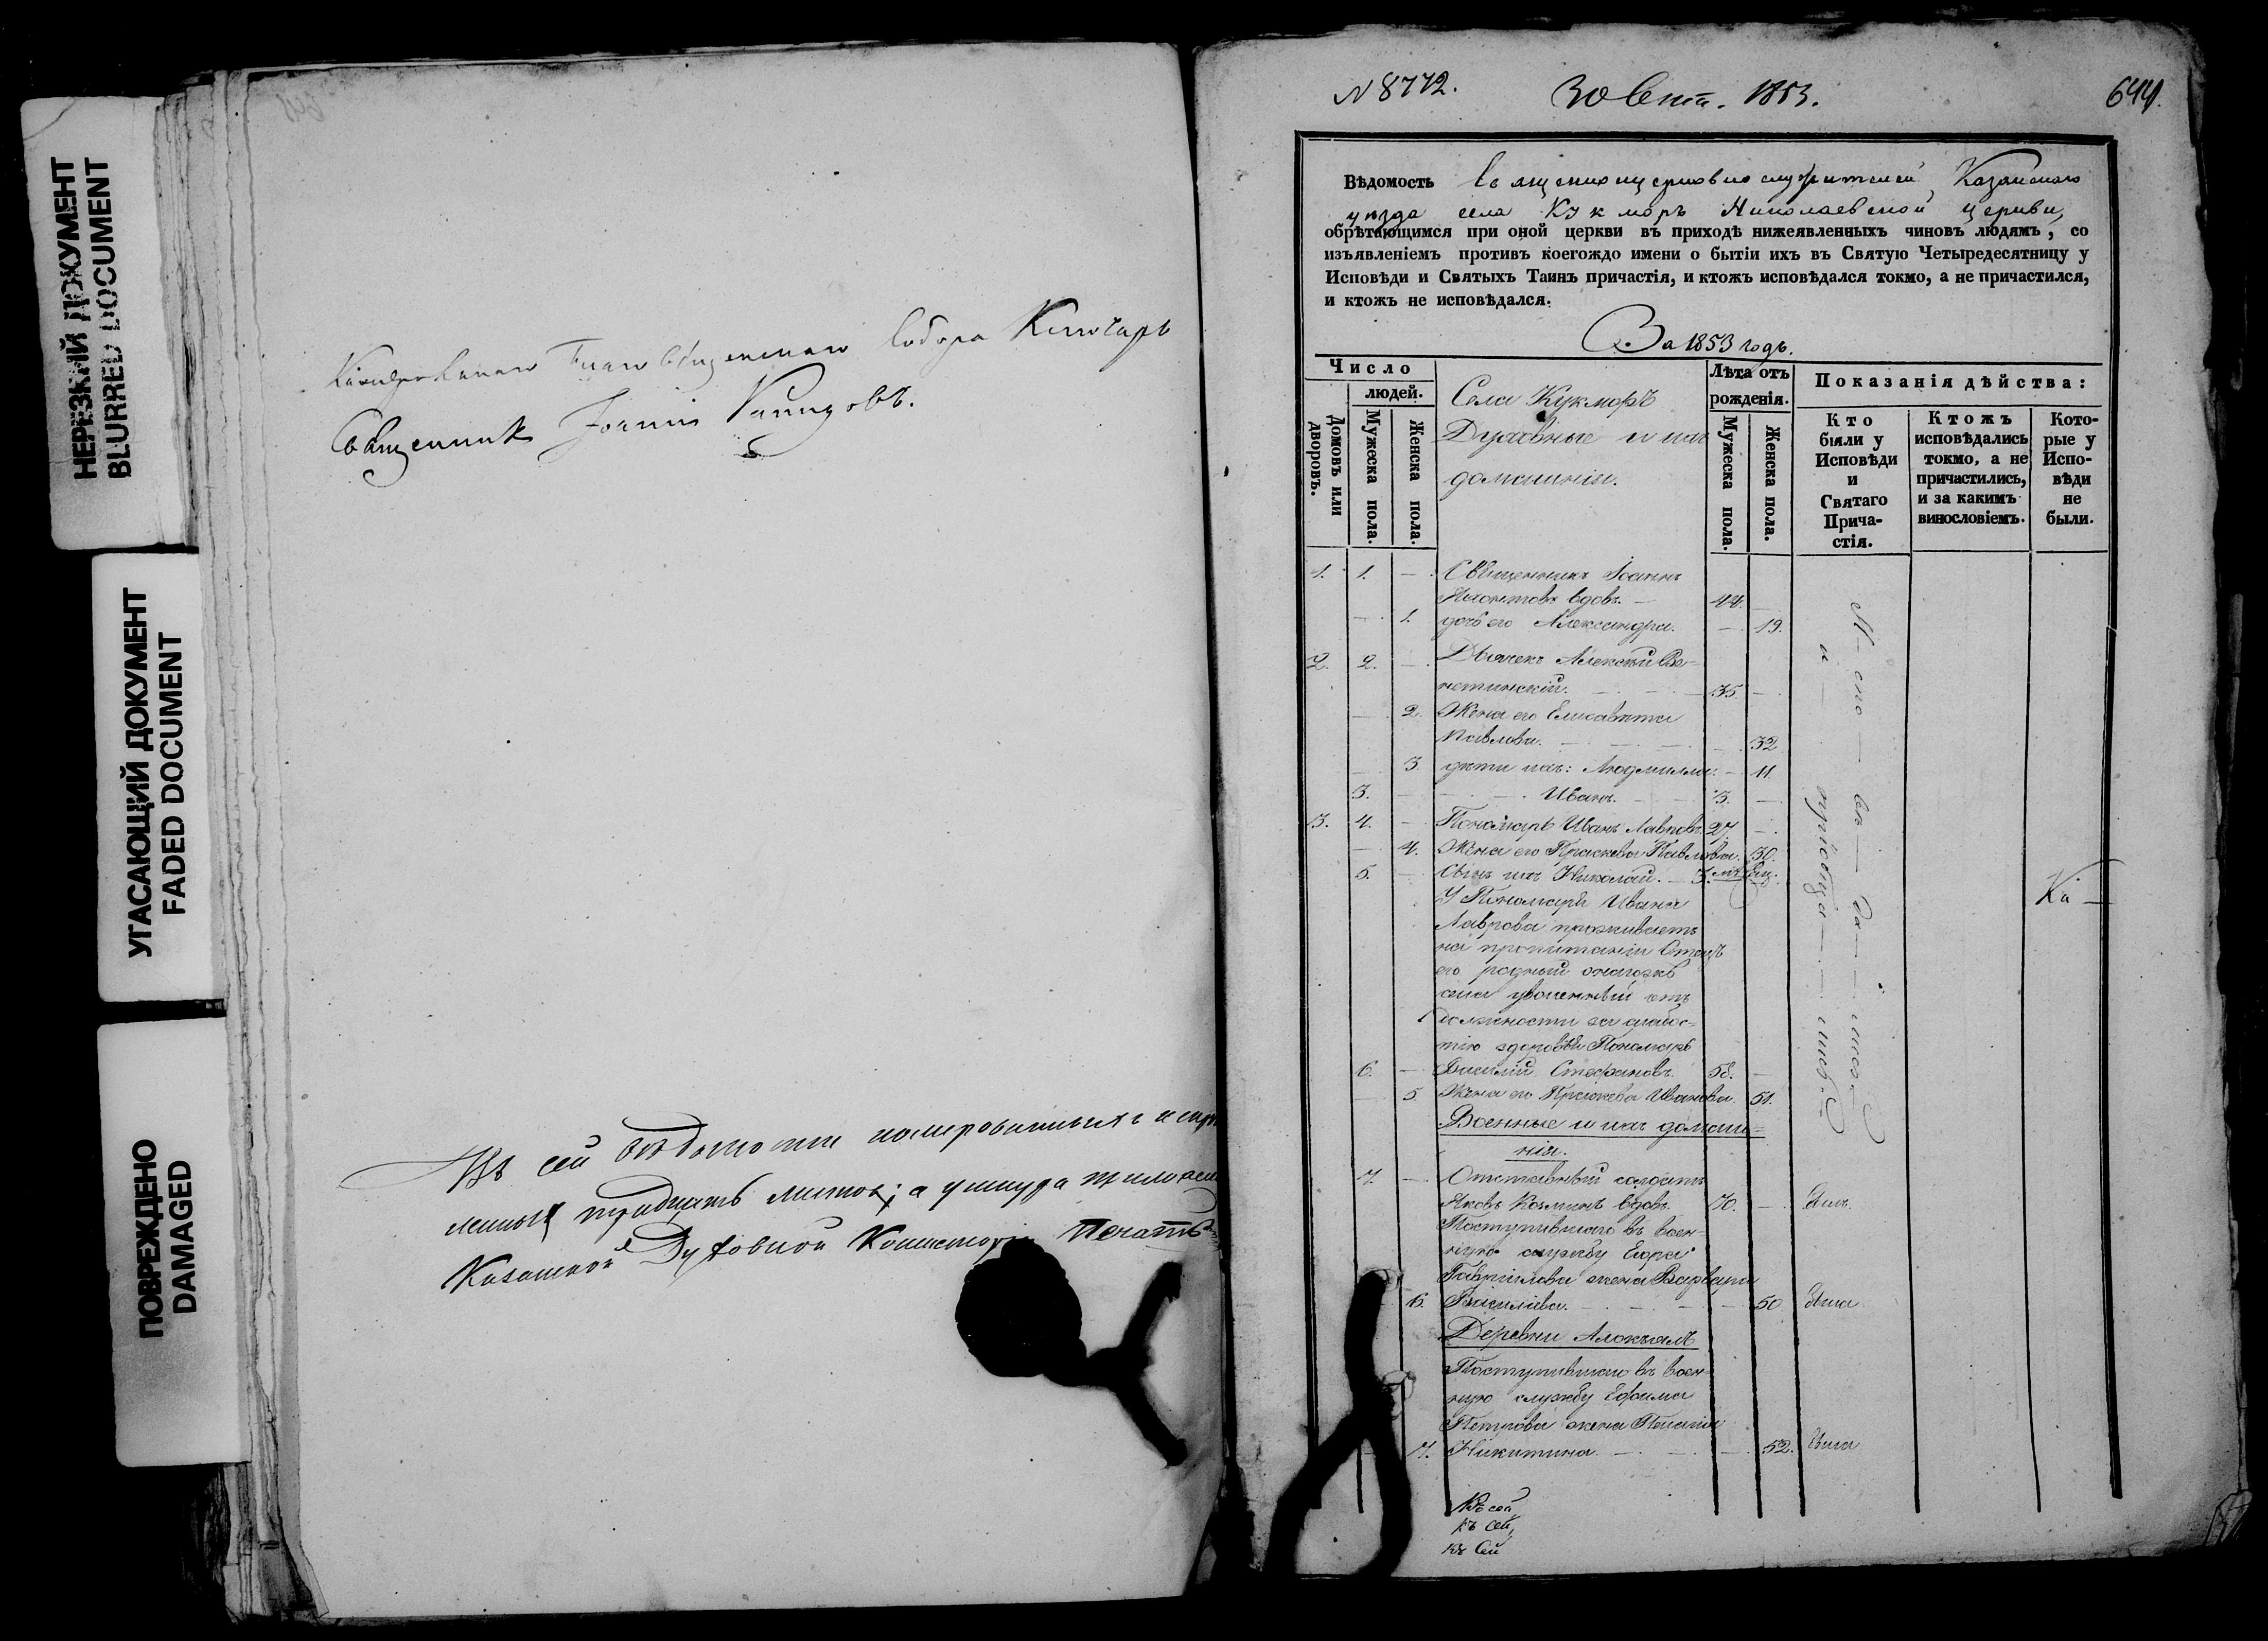 НЕРЕЗКИЙ ДОКУМЕНТ
BLURRED DOCUMENT
УГАСАЮЩИЙ ДОКУМЕНТ
FADED DOCUMENT
ПОВРЕЖДЕНО
DAMAGED
Собора Ключарь
Священникъ
Въ сей ведомости
тридцать листовъ; а у шнура
Казанской Духовной Консисторіи Печать
N 8772.
30 Сент. 1853.
644.
Вѣдомость Священноцерковнослужителей Казанскаго
уѣзда села Кукморъ Николаевской церкви,
обрѣтающимся при оной церкви въ приходѣ нижеявленныхъ чиновъ людямъ, со
изъявленіемъ противъ коегождо имени о бытіи ихъ въ Святую Четыредесятницу у
Исповѣди и Святыхъ Таинъ причастія, и ктожъ исповѣдался токмо, а не причастился,
и ктожъ не исповѣдался.
За 1853 годъ.
Число
людей.
Домовъ или дворовъ.
Мужеска пола.
Женска пола.
Села Кукморъ
Духовные и ихъ
домашніи.
Лѣта отъ
рожденія.
Мужеска пола.
Женска пола.
Показанія дѣйства:
Кто
были у
Исповѣди
и
Святаго
Прича-
стія.
Ктожъ
исповѣдались
токмо, а не
причастились,
и за какимъ
винословіемъ.
Кото-
рые у
Испо-
вѣди
не
были.
1. 1. — Священникъ Іоаннъ
вдовъ. — 44. —
— 1. дочь его Александра. — 19.
2. 2. — Дьячекъ Алексѣй Ве-
нетинскій. — 35. —
— 2. Жена его Елисавета
Павлова. — 32
— 3. дѣти ихъ: Людмилла. — 11.
3. — Иванъ. — 3. —
3. 4. — Пономарь Иванъ Лавровъ. 27. —
— 4. Жена его Прасковья Павлова. 30.
5. — Сынъ ихъ Николай. —
У Пономаря Ивана
Лаврова проживаетъ
на пропитаніи Отецъ
его родный
села уволенный отъ
должности за слабос-
тію здоровья Пономарь
6. — Василій Стефановъ. 58. —
— 5 Жена его Прасковья Иванова. 51.
Военные и ихъ домаш-
ніи.
7. — Отставный солдатъ
Яковъ Козминъ вдовъ. 70. — былъ.
Поступившаго въ воен-
ную службу
Гаврилова жена Варвара
6. Васильева. — 50. была
Деревни
Поступившаго въ воен-
ную службу Ефима
Петрова жена Пелагія
7. Никитина. — 52. была
Ка —
Къ сей
къ сей,
къ Сей